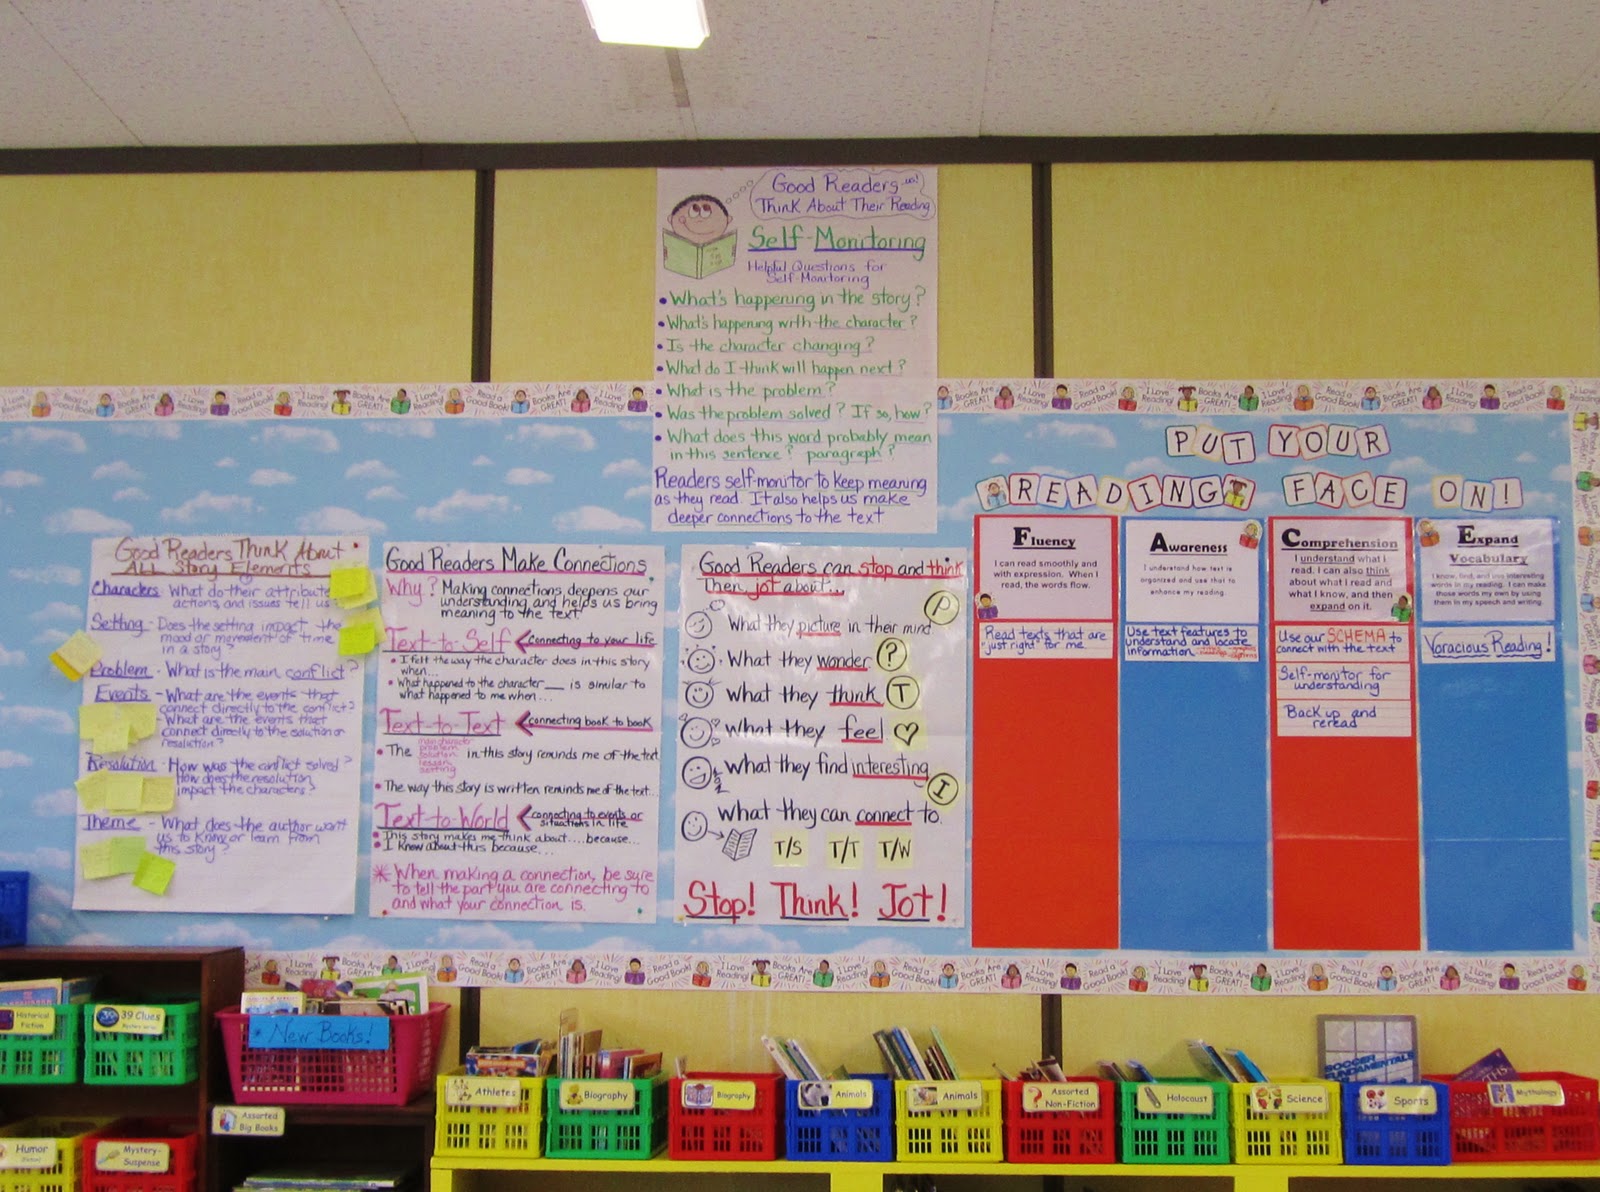 Good Readers
Think About Their Reading
Self-Monitoring
Helpful Questions for
Self-Monitoring
• What's happening in the story?
• What's happening with the character?
• Is the character changing?
• What do I think will happen next?
• What is the problem?
• Was the problem solved? If so, how?
• What does this word probably mean
in this sentence? paragraph?
Readers self-monitor to keep meaning
as they read. It also helps us make
deeper connections to the text
Good Readers Think About
ALL Story Elements
Characters - What do their attributes
actions, and issues tell us?
Setting - Does the setting impact the
mood or movement of time
in a story?
Problem - What is the main conflict?
Events - What are the events that
connect directly to the conflict?
- What are the events that
connect directly to the solution or
resolution?
Resolution - How was the conflict solved?
How does the resolution
impact the characters?
Theme - What does the author want
us to know or learn from
this story?
Good Readers Make Connections
Why? Making connections deepens our
understanding and helps us bring
meaning to the text.
Text-to-Self connecting to your life
• I felt the way the character does in this story
when...
• What happened to the character ___ is similar to
what happened to me when...
Text-to-Text connecting book to book
main character
problem
solution
lesson
setting
• The in this story reminds me of the text
• The way this story is written reminds me of the text...
Text-to-World connecting to events or
situations in life
• This story makes me think about.....because...
• I know about this because...
* When making a connection, be sure
to tell the part you are connecting to
and what your connection is.
Good Readers can stop and think
Then jot about...
What they picture in their mind P
- What they wonder ?
- What they think T
- What they feel
- What they find interesting I
What they can connect to.
T/S T/T T/W
Stop! Think! Jot!
PUT YOUR
READING FACE ON!
Fluency
I can read smoothly and
with expression. When I
read, the words flow.
Read texts that are
"just right" for me
Awareness
I understand how text is
organized and use that to
enhance my reading.
Use text features to
understand and locate
information
Comprehension
I understand what I
read. I can also think
about what I read and
what I know, and then
expand on it.
Use our SCHEMA to
connect with the text
Self-monitor for
understanding
Back up and
reread
Expand
Vocabulary
I know, find, and use interesting
words in my reading. I can make
those words my own by using
them in my speech and writing.
Voracious Reading!
I Love Reading!
Read a Good Book!
Books Are GREAT!
Historical
Fiction
39 Clues
Mystery Series
* New Books!
Assorted
Big Books
Humor
Mystery-
Suspense
Athletes
Biography
Biography
Animals
Animals
Assorted
Non-Fiction
Holocaust
Science
Sports
Mythology
SOCCER
FUNDAMENTALS